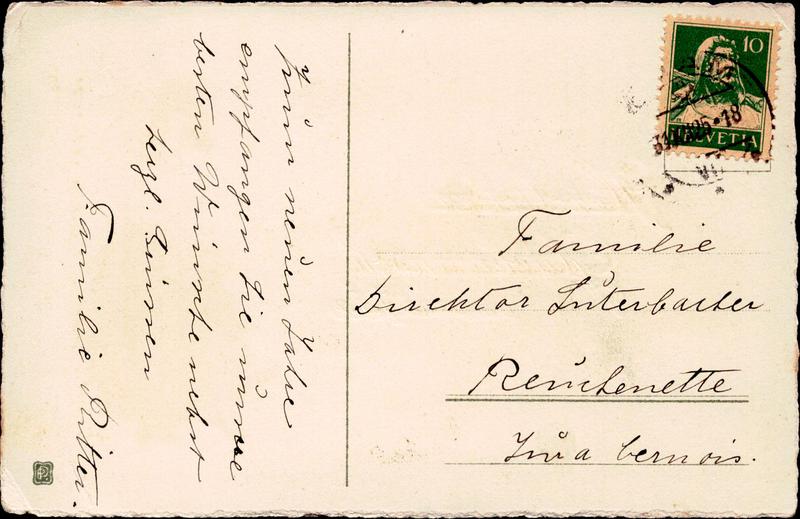 Zum neuen Jahre
empfangen Sie unsere
besten Wünsche nebst
herzl. Grüssen
Familie Ritter.
10
HELVETIA
Familie
Direktor Luterbacher
Reuchenette
Jura bernois.